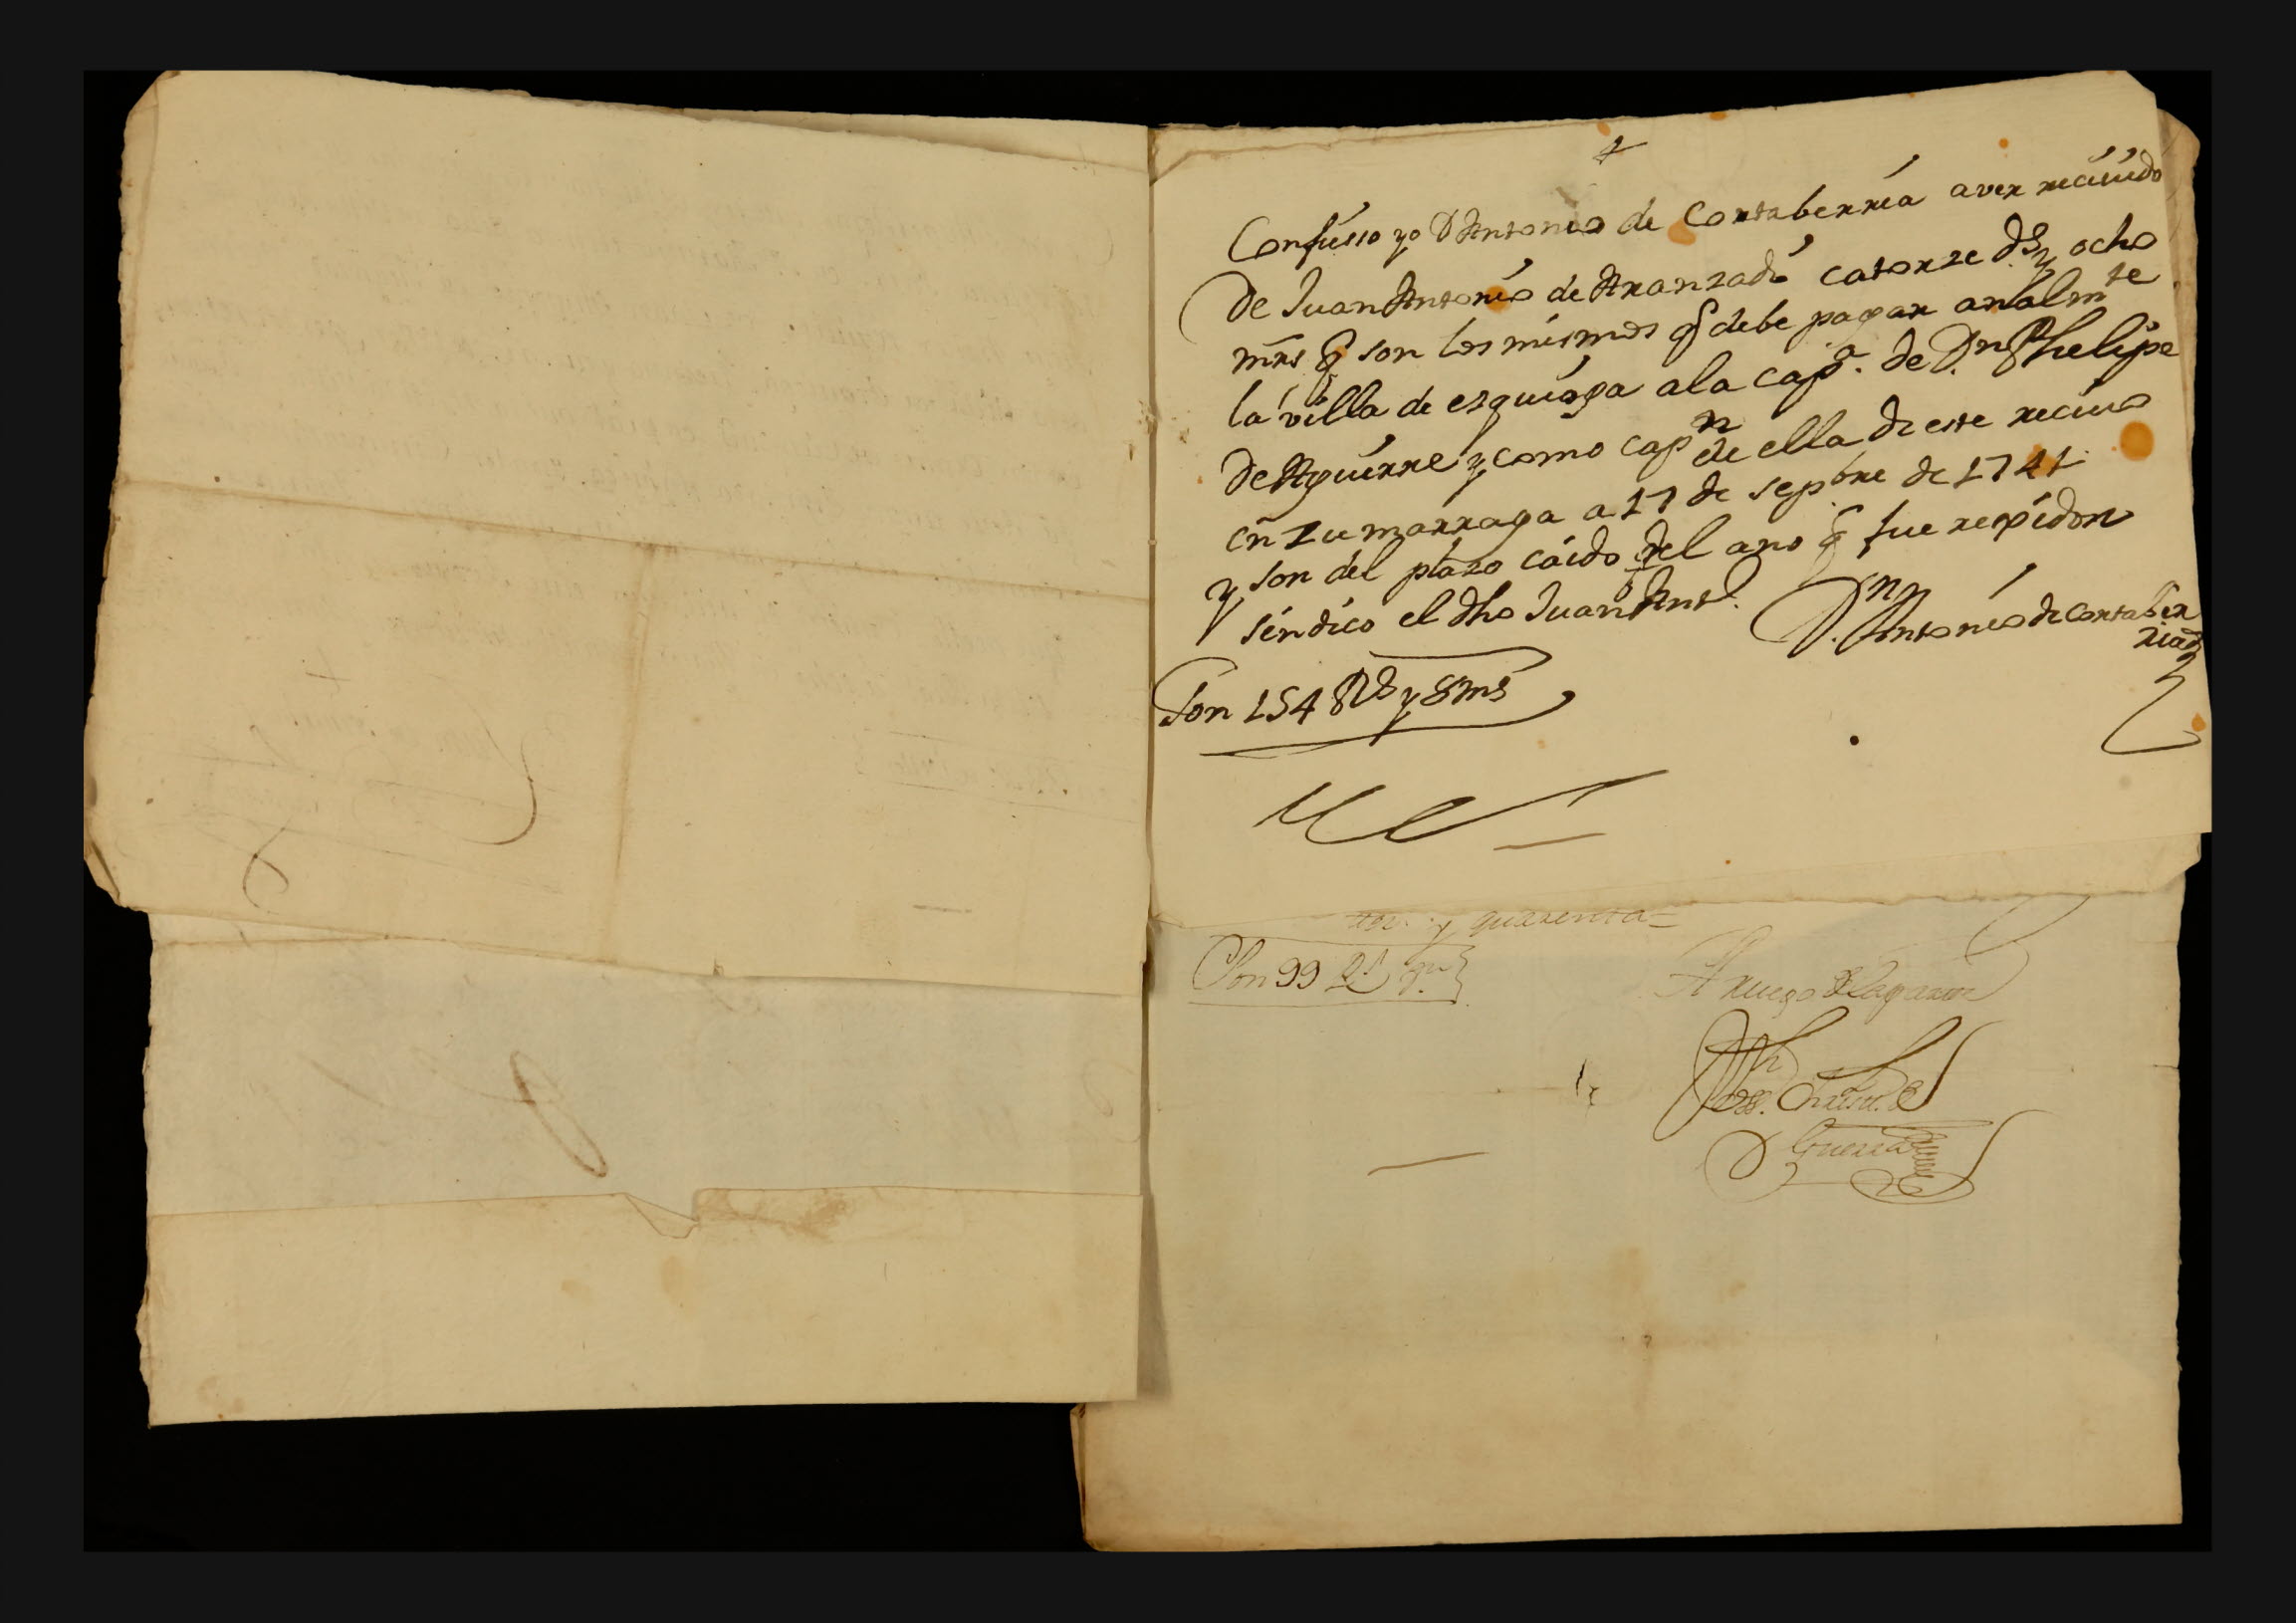 Confiesso yo D Antonio de Contaberria aver reciuido
De Juan Antonio de Aranzadi catorze ds y ocho
mrs q son los mismos q debe pagar analmte
la villa de ezquioga a la capa. de Dn Phelipe
De Aguirre y como capn de ella di este reciuo
en Zumarraga a 17 de sepbre de 1741
y son del plazo caido del ano q fue rexidor
sindico el dho Juan Anto.
Dn Antonio de Contaber
ria
Son 154 Rs y 8 ms
y quarenta =
Son 99 Rs
A ruego
Guerra